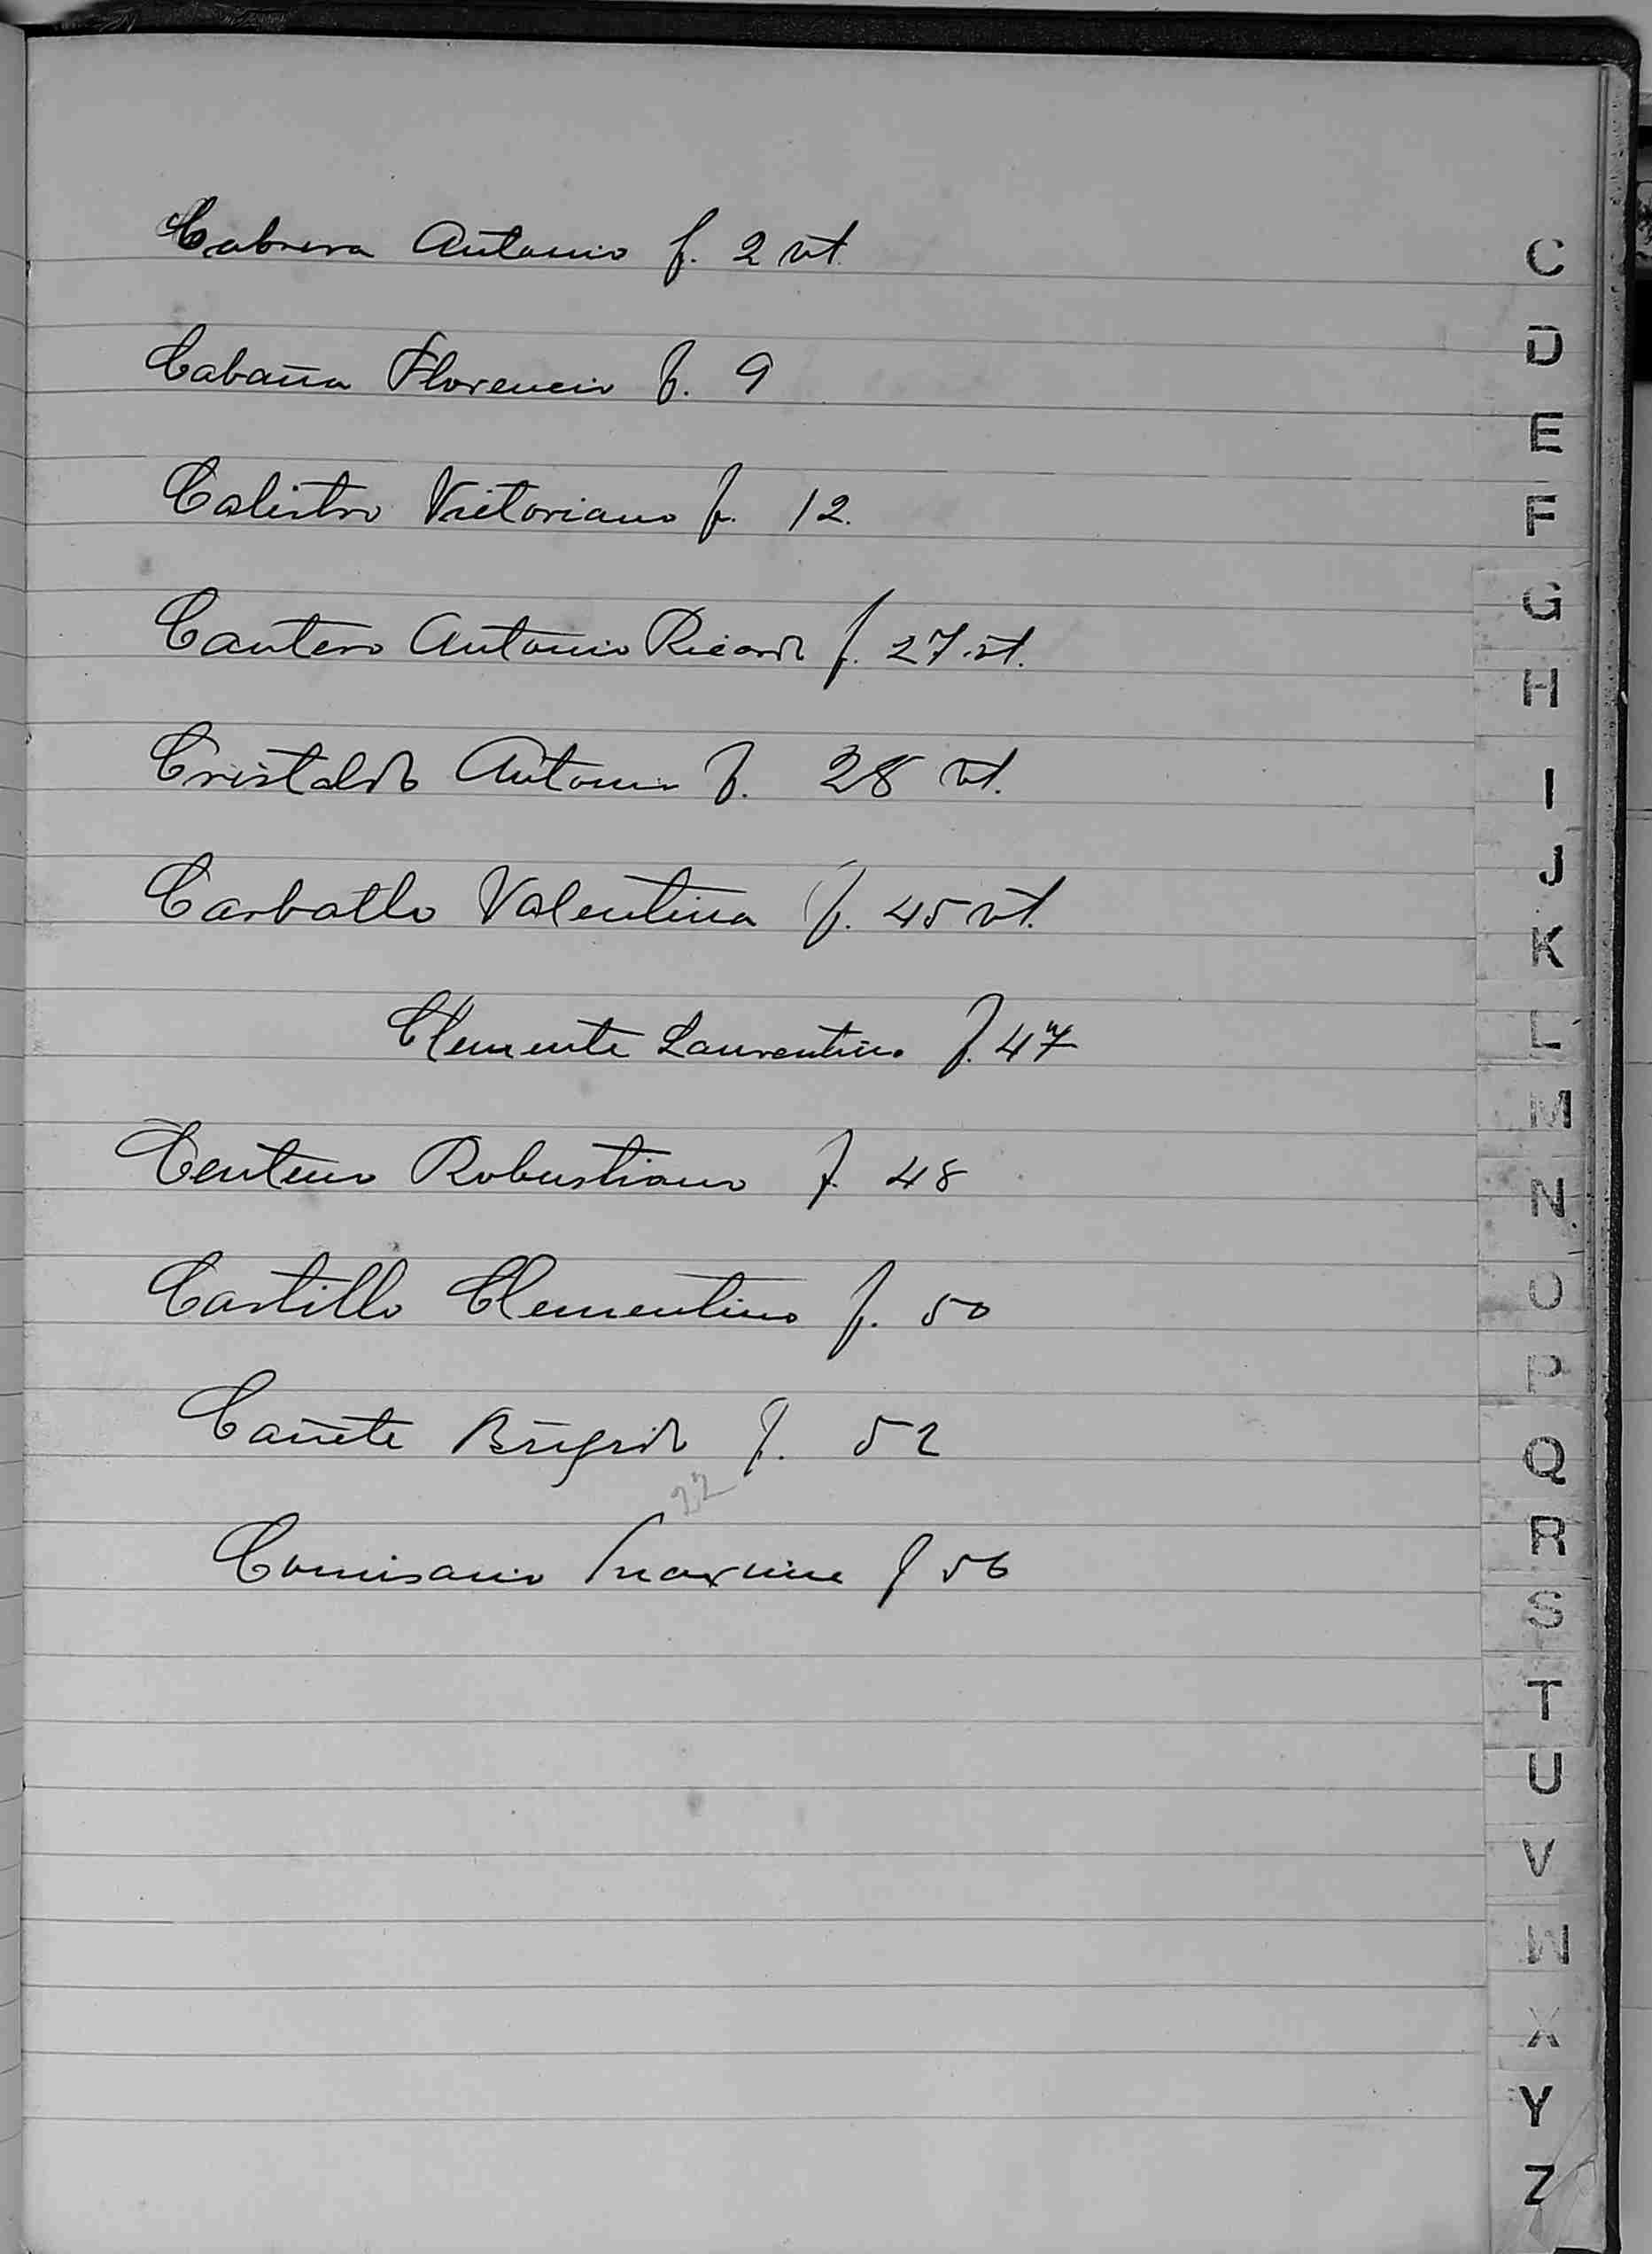 Cabrera Antonio f. 2 vt.
Cabaña Florencio f. 9
Calistro Victoriano f. 12.
Cantero Antonio Ricardo f. 27 vt.
Cristaldo Antonio f. 28 vt.
Carballo Valentina f. 45 vt.
Clemente Laurentino f. 47
Centeno Robustiano f. 48
Castillo Clementino f. 50
Cañete Brígido f. 52
22
Comisario f 56
C
D
E
F
G
H
I
J
K
L
M
N
O
P
Q
R
S
T
U
V
W
X
Y
Z